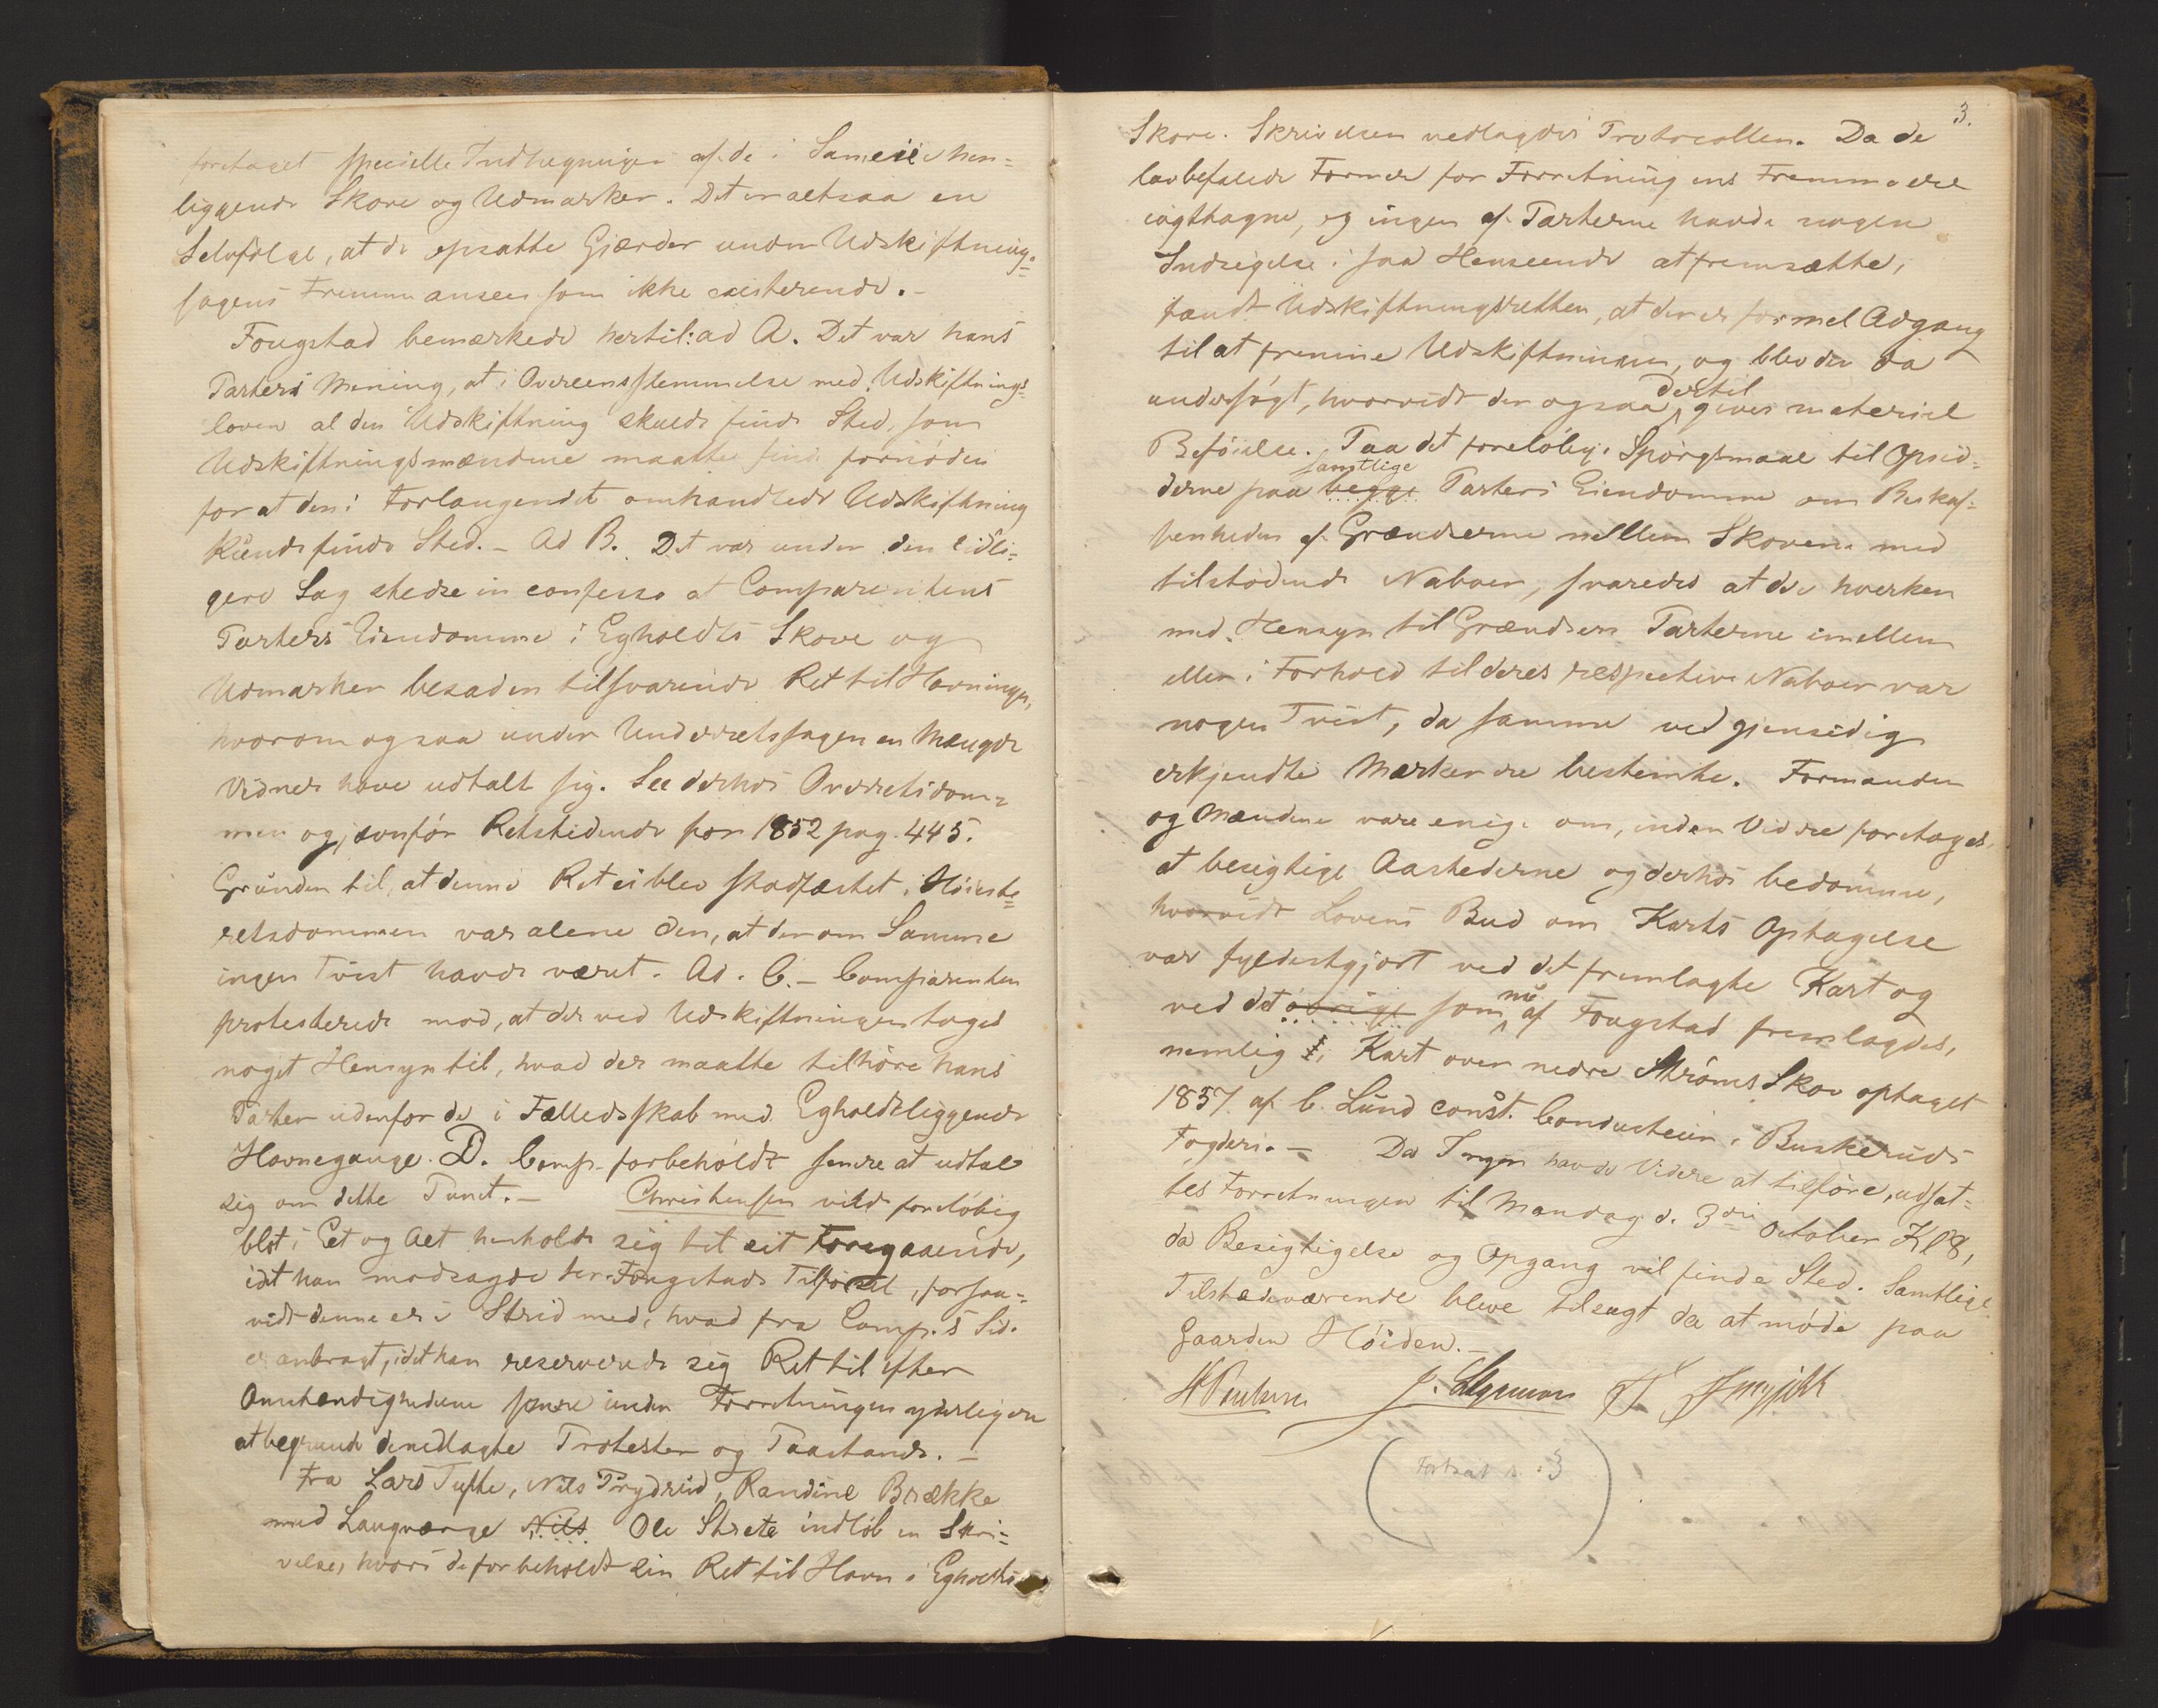 foretaget specielle Indhegninger af de i Sameie hen=
liggende Skove og Udmarker. Det er altsaa en
Selvfølge, at de opsatte Gjærder under Udskiftnings=
sagens Fremme ansees som ikke existerende.-
Fougstad bemærkede hertil: ad A. Det var hans
Parters Mening, at i Overeensstemmelse med Udskiftnings=
loven al den Udskiftning skulde finde Sted, som
Udskiftningsmændene maatte finde fornøden
for at den i Forlangendet omhandlede Udskiftning
kunde finde Sted. - Ad B. Det var under den tidli=
gere Sag stedse in confesso at Comparentens
Parters Eiendomme i Egholdts Skove og
Udmarker besad en tilsvarende Ret til Havninger,
hvorom ogsaa under Underretssagen en Mængde
Vidner have udtalt sig. See derhos Overretsdom=
men og jævnfør Retstidende for 1852 pag. 445.
Grunden til, at denne Ret ei blev stadfæstet i Høieste=
retsdommen var alene den, at der om Samme
ingen Tvist havde været. Ad. C. - Comparenten
protesterede mod, at der ved Udskiftningen toges
noget Hensyn til, hvad der maatte tilhøre hans
Parter udenfor de i Fælledsskab med Egholdt liggende
Havnegange. D. Comp. forbeholdt senere at udtale
sig om dette Punct. - Christensen vilde foreløbig
blot i Eet og Alt henholde sig til sit Foregaaende,
idet han modsagde Hr. Fougstads Tilførsel, forsaa=
vidt denne er i Strid med, hvad fra Comp.s Side
er anbragt, idet han reserverede sig Ret til efter
Omstændighederne senere under Forretningen yderligere
at begrunde de nedlagte Protester og Paastande. -
Fra Lars Tufte, Nils Prydrud, Randine Brække
med Laugværge Nils Ole Strete indløb en Skri=
velse, hvori de forbeholdt sin Ret til Havn i Egholdts
3.
Skove. Skrivelsen vedlagdes Protocollen. Da de
lovbefalede Former for Forretningens Fremme ere
iagttagne, og ingen af Parterne havde nogen
Indsigelse i saa Henseende at fremsætte,
fandt Udskiftningsretten, at der er formel Adgang
til at fremme Udskiftningen, og blev der da
undersøgt, hvorvidt der ogsaa dertil gives materiel
Beføielse. Paa det foreløbige Spørgsmaal til Opsid=
derne paa begge samtlige Parters Eiendomme om Beskaf=
fenheden af Grændserne mellem Skovene med
tilstødende Naboer, svaredes at der hverken
med Hensyn til Grændsen Parterne imellem
eller i Forhold til deres respective Naboer var
nogen Tvist, da samme ved gjensidig
erkjendte Mærker ere bestemte. Formanden
og Mændene vare enige om, inden Videre foretages,
at besigtige Aastederne og derhos bedømme,
hvorvidt Lovens Bud om Karts Optagelse
var fyldestgjort ved det fremlagte Kart og
ved det øvrige som nu af Fougstad fremlagdes,
nemlig 1, Kart over nedre Strøms Skov optaget
1857 af C. Lund const. Conducteur i Buskeruds
Fogderi. - Da Ingen havde Videre at tilføre, udsat=
tes Forretningen til Mandag d. 3die October Kl 8,
da Besigtigelse og Opgang vil finde Sted. Samtlige
Tilstedeværende bleve tilsagt da at møde paa
Gaarden Høiden. -
(Fortsat s. 3)